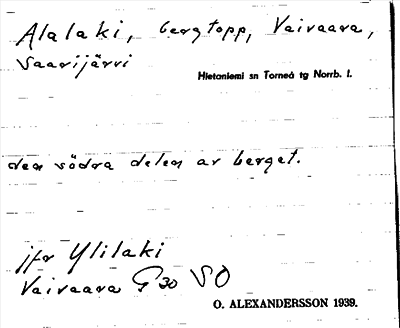 Alalaki, bergtopp, Vaivaara,
Saarijärvi
Hietaniemi sn Torneå tg Norrb. l.
den södra delen av berget.
jfr Ylilaki
Vaivaara G 30 SO
O. ALEXANDERSSON 1939.